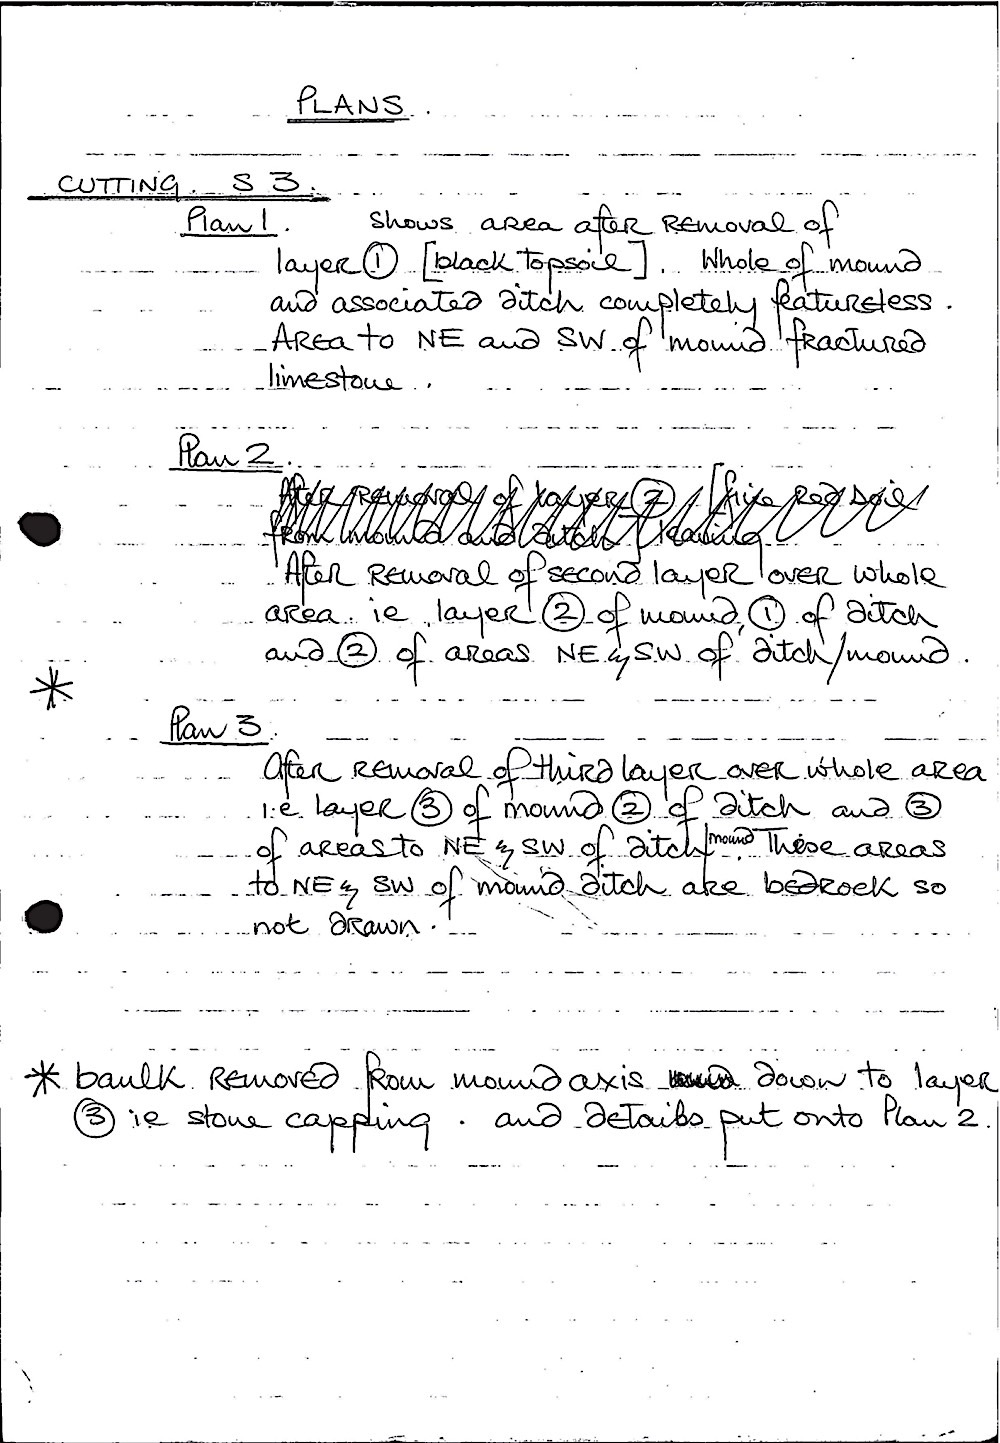 PLANS.
CUTTING. S 3.
Plan 1. Shows area after removal of
layer ① [black topsoil]. Whole of mound
and associated ditch completely featureless.
Area to NE and SW of mound fractured
limestone.
Plan 2.
After removal of layer ② [fine red soil
from mound and ditch
After removal of second layer over whole
area ie layer ② of mound, ① of ditch
and ② of areas NE & SW of ditch/mound.
*
Plan 3.
After removal of third layer over whole area
i.e layer ③ of mound ② of ditch and ③
of areas to NE & SW of ditch/mound. These areas
to NE & SW of mound ditch are bedrock so
not drawn.
* baulk removed from mound axis down to layer
③ ie stone capping. and details put onto Plan 2.